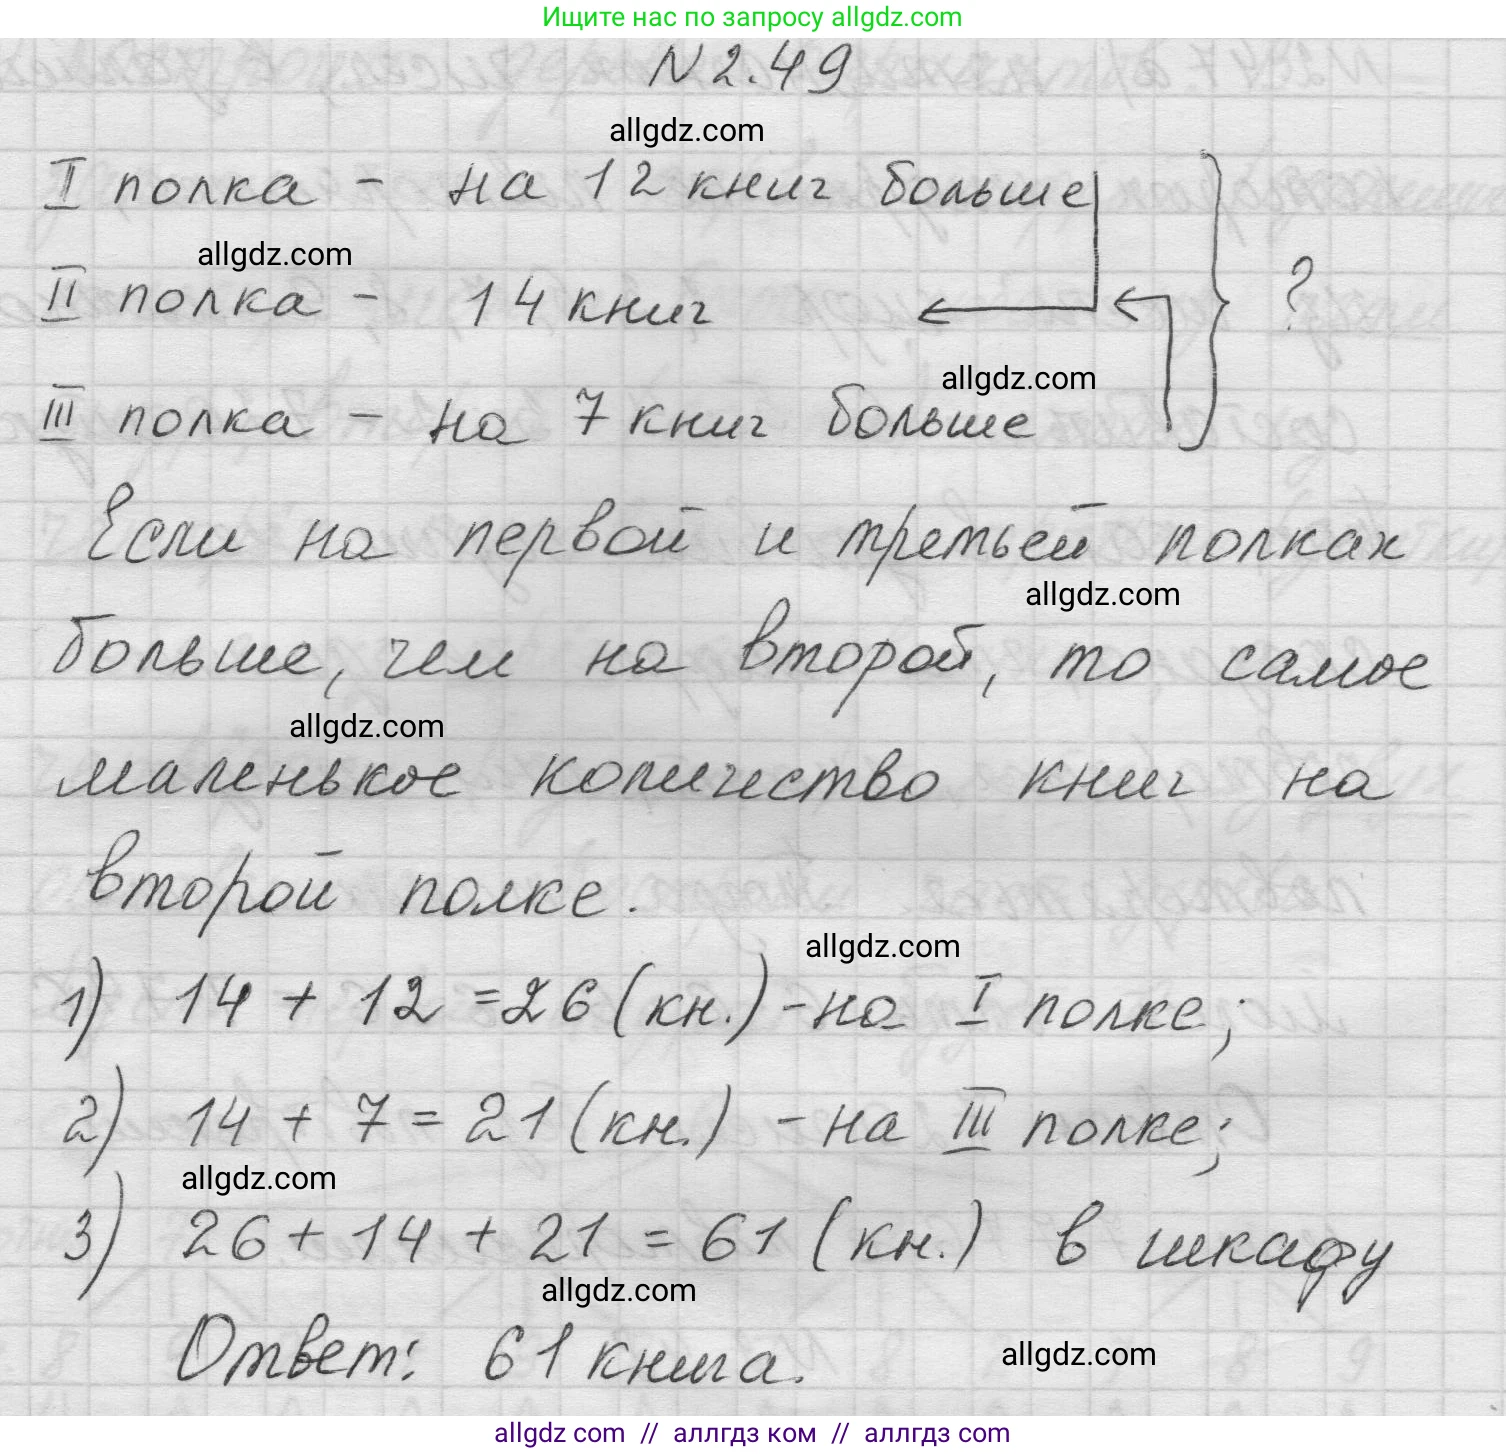 Ищите нас по запросу allgdz.com
N 2.49
allgdz.com
I полка - на 12 книг больше
allgdz.com
II полка - 14 книг ?
allgdz.com
III полка - на 7 книг больше
Если на первой и третьей полках
allgdz.com
больше, чем на второй, то самое
allgdz.com
маленькое количество книг на
второй полке.
allgdz.com
1) 14 + 12 = 26 (кн.) - на I полке;
2) 14 + 7 = 21 (кн.) - на III полке;
allgdz.com
3) 26 + 14 + 21 = 61 (кн.) в шкафу
allgdz.com
Ответ: 61 книга.
allgdz.com
allgdz.com // аллгдз ком // аллгдз.com